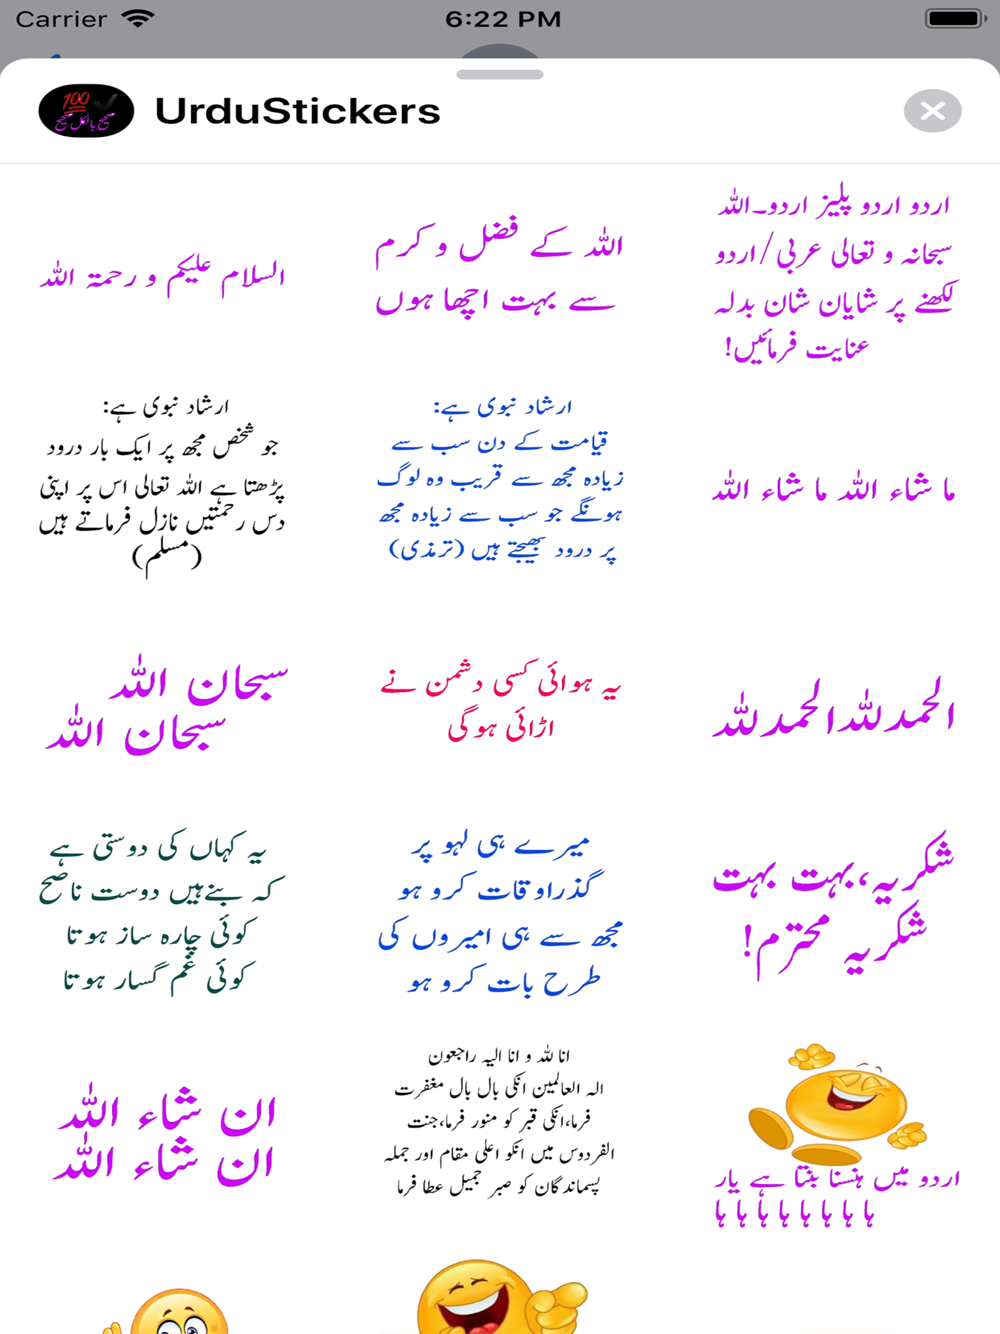 Carrier
6:22 PM
100
صحیح بالکل صحیح
UrduStickers
السلام علیکم و رحمۃ اللہ
اللہ کے فضل و کرم
سے بہت اچھا ہوں
اردو اردو پلیز اردو۔اللہ
سبحانہ و تعالی عربی/اردو
لکھنے پر شایان شان بدلہ
عنایت فرمائیں!
ارشاد نبوی ہے:
جو شخص مجھ پر ایک بار درود
پڑھتا ہے اللہ تعالی اس پر اپنی
دس رحمتیں نازل فرماتے ہیں
(مسلم)
ارشاد نبوی ہے:
قیامت کے دن سب سے
زیادہ مجھ سے قریب وہ لوگ
ہونگے جو سب سے زیادہ مجھ
پر درود بھیجتے ہیں (ترمذی)
ما شاء اللہ ما شاء اللہ
سبحان اللہ
سبحان اللہ
یہ ہوائی کسی دشمن نے
اڑائی ہوگی
الحمدللہ الحمدللہ
یہ کہاں کی دوستی ہے
کہ بنےہیں دوست ناصح
کوئی چارہ ساز ہوتا
کوئی غم گسار ہوتا
میرے ہی لہو پر
گذراوقات کرو ہو
مجھ سے ہی امیروں کی
طرح بات کرو ہو
شکریہ،بہت بہت
شکریہ محترم!
ان شاء اللہ
ان شاء اللہ
انا للہ و انا الیہ راجعون
الہ العالمین انکی بال بال مغفرت
فرما،انکی قبر کو منور فرما،جنت
الفردوس میں انکو اعلی مقام اور جملہ
پسماندگان کو صبر جمیل عطا فرما
اردو میں ہنسنا بنتا ہے یار
ہا ہا ہا ہا ہا ہا ہا ہا